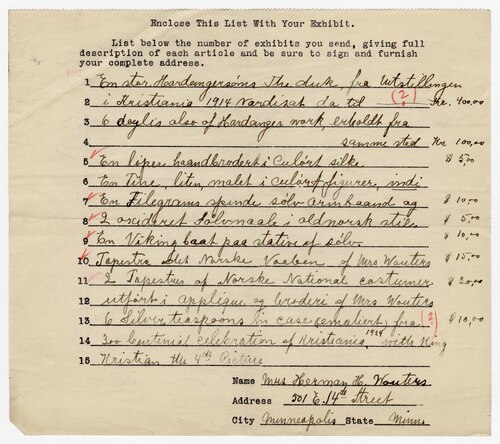 Enclose This List With Your Exhibit.
List below the number of exhibits you send, giving full
description of each article and be sure to sign and furnish
your complete address.
1 En stor Hardangersöms The duk, fra Utstillingen
(2)
2 i Kristiania 1914 Vardisat da tol Kr. 400,00
3 6 doylis also of Hardanger work, erholdt fra
4 samme sted Kr 100,00
5 En löper haandbrodert i Culört silke $ 5,00
6 En Tine, liten, malet i culört figurer, indi
7 En Filegrams spinde sölv armbaand og $ 10,00
8 2 oxideret Sölvmaale i oldnorsk stil $ 5,00
9 En Viking baat paa stative af sölv $ 10,00
10 Tapestre Det Norske Vaaben of Mrs Wouters $ 15,00
11 2 Tapestres of Norske National costumer $ 20,00
12 utfört i applique og broderi of Mrs Wouters
13 6 Silver teaspoons in case (emaliert) fra (2) $ 10,00
14 300 Centenial celebration of Kristiania, 1924 with King
15 Kristian the 4th Picture
Name Mrs Herman H. Wouters
Address 501 E. 14th Street
City Minneapolis State Minn.